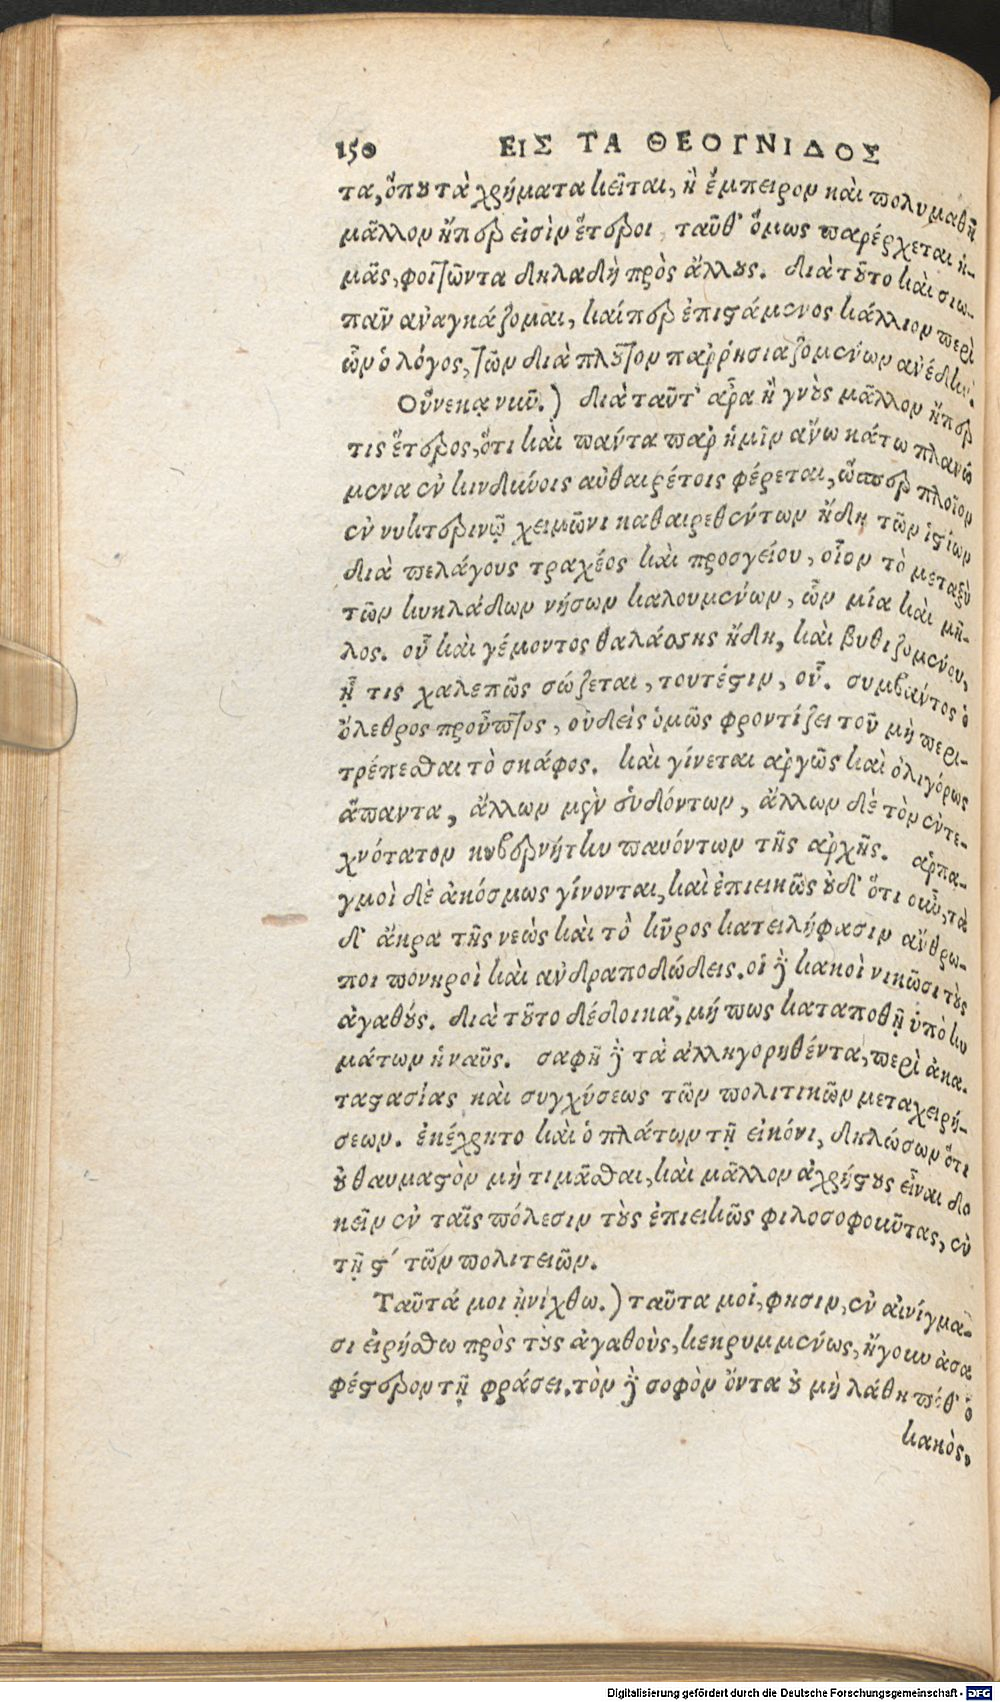 150 ΕΙΣ ΤΑ ΘΕΟΓΝΙΔΟΣ
τα, ὅπου τὰ χρήματα κεῖται, ἢ ἔμπειρον καὶ πολυμαθῆ
μᾶλλον ἤπερ εἰσὶν ἕτεροι, ταῦθ' ὅμως παρέρχεται ἡ-
μᾶς, φοιτῶντα δηλαδὴ πρὸς ἄλλους. διὰ τοῦτο καὶ σιω-
πᾶν ἀναγκάζομαι, καίπερ ἐπιστάμενος κάλλιον περὶ
ὧν ὁ λόγος, τῶν διὰ πλοῦτον παρρησιαζομένων ἀνέδην.
Οὕνεκα νῦν.) διὰ ταῦτ' ἄρα ἢ γνοὺς μᾶλλον ἤπερ
τις ἕτερος, ὅτι καὶ πάντα παρ' ἡμῖν ἄνω κάτω πλανώ
μενα ἐν κινδύνοις αὐθαιρέτοις φέρεται, ὥσπερ πλοῖον
ἐν νυκτερινῷ χειμῶνι καθαιρεθέντων ἤδη τῶν ἱστίων
διὰ πελάγους τραχέος καὶ προσγείου, οἷον τὸ μεταξὺ
τῶν κυκλάδων νήσων καλουμένων, ὧν μία καὶ μῆ-
λος. οὗ καὶ γέμοντος θαλάσσης ἤδη, καὶ βυθιζομένου,
ᾗ τις χαλεπῶς σώζεται, τουτέστιν, οὗ. συμβάντος ὁ
ὄλεθρος προὖπτος, οὐδεὶς ὁμῶς φροντίζει τοῦ μὴ περι-
τρέπεσθαι τὸ σκάφος. καὶ γίνεται ἀργῶς καὶ ὀλιγόρως
ἅπαντα, ἄλλων μὲν εὑδόντων, ἄλλων δὲ τὸν ἐντε-
χνότατον κυβερνήτην παυόντων τῆς ἀρχῆς. ἁρπα-
γμοὶ δὲ ἀκόσμως γίνονται, καὶ ἐπιεικῶς οὐδ' ὅτι οὖν, τὰ
δ' ἄκρα τῆς νεὼς καὶ τὸ κῦρος κατειλήφασιν ἄνθρω-
ποι πονηροὶ καὶ ἀνδραποδώδεις. οἱ γὰρ κακοὶ νικῶσι τοὺς
ἀγαθούς. διὰ τοῦτο δέδοικα, μή πως καταποθῇ ὑπὸ κυ
μάτων ἡ ναῦς. σαφῆ γὰρ τὰ ἀλληγορηθέντα, περὶ ἀκα-
ταστασίας καὶ συγχύσεως τῶν πολιτικῶν μεταχειρή-
σεων. ἐκέχρητο καὶ ὁ πλάτων τῇ εἰκόνι, δηλώσων ὅτι
οὐ θαυμαστὸν μὴ τιμᾶσθαι, καὶ μᾶλλον ἀχρήστους εἶναι δο
κεῖν ἐν ταῖς πόλεσιν τοὺς ἐπιεικῶς φιλοσοφοῦντας, ἐν
τῇ ϛ' τῶν πολιτειῶν.
Ταῦτά μοι ᾐνίχθω.) ταῦτα μοί, φησιν, ἐν αἰνίγμα-
σι εἰρήσθω πρὸς τοὺς ἀγαθοὺς, κεκρυμμένως, ἤγουν ἀσα
φέστερον τῇ φράσει. τὸν γὰρ σοφὸν ὄντα οὐ μὴ λάθῃ ποθ' ὁ
κακὸς,
Digitalisierung gefördert durch die Deutsche Forschungsgemeinschaft - DFG